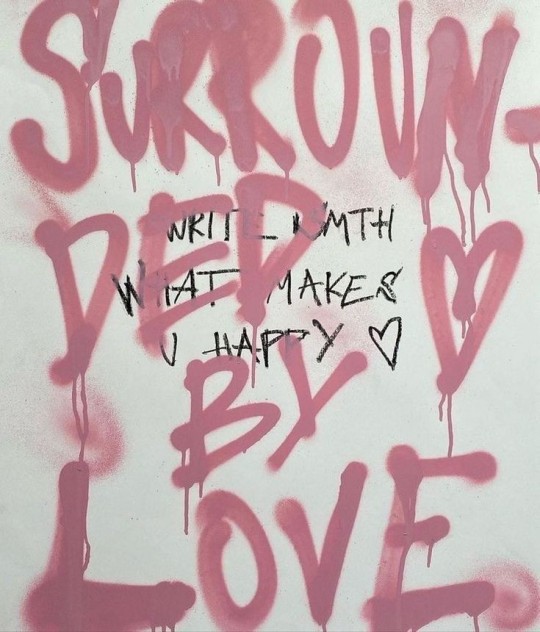 SURROUN-
DED ♡
WRITE SMTH
WHAT MAKES
U HAPPY ♡
BY
LOVE